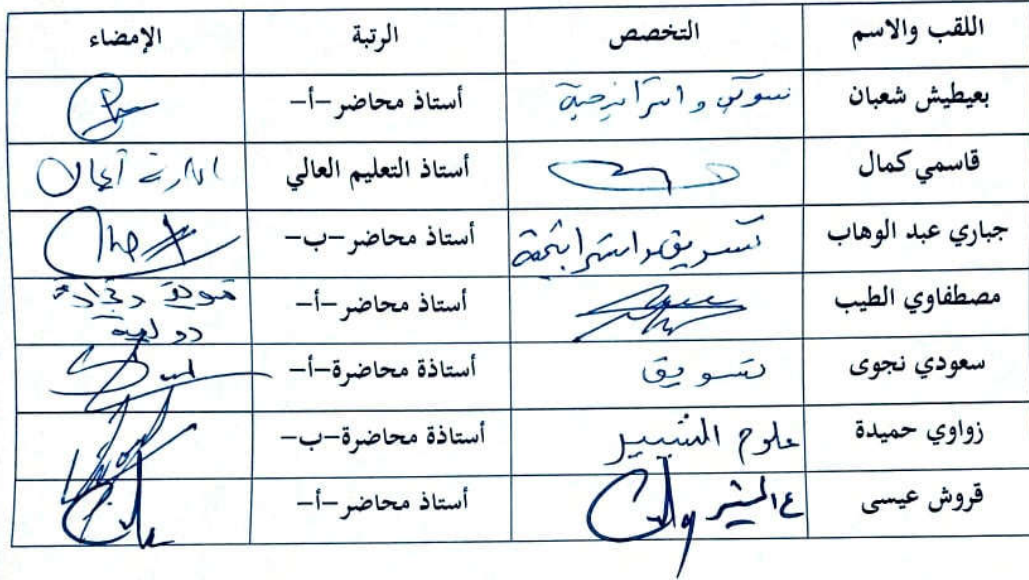 اللقب والاسم التخصص الرتبة الإمضاء
بعيطيش شعبان أستاذ محاضر-أ-
قاسمي كمال أستاذ التعليم العالي إدارة أعمال
جباري عبد الوهاب أستاذ محاضر-ب-
مصطفاوي الطيب أستاذ محاضر-أ-
دولية
سعودي نجوى تسويق أستاذة محاضرة-أ-
زواوي حميدة علوم التسيير أستاذة محاضرة-ب-
قروش عيسى أستاذ محاضر-أ-